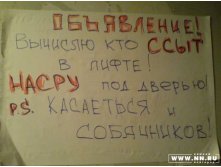 ОБЪЯВЛЕНИЕ!
ВЫЧИСЛЮ КТО ССЫТ
В ЛИФТЕ!
НАСРУ ПОД ДВЕРЬЮ
P.S. КАСАЕТЬСЯ И
СОБАЧНИКОВ!
WWW.NN.RU